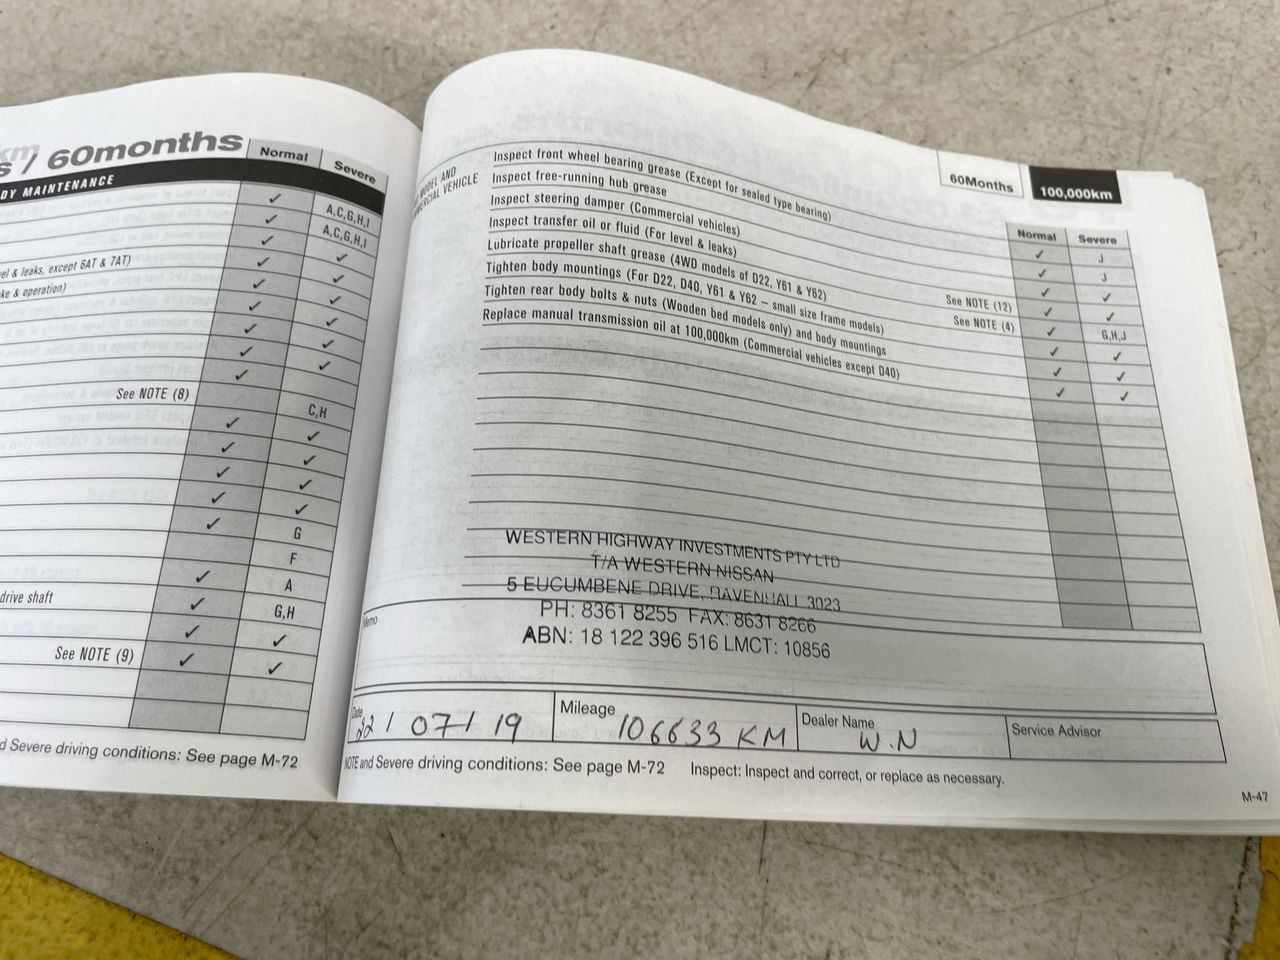 km
s / 60months
Normal Severe
DY MAINTENANCE
A,C,G,H,I
A,C,G,H,I
el & leaks, except 6AT & 7AT)
ke & operation)
See NOTE (8)
C,H
G
F
A
drive shaft
G,H
See NOTE (9)
d Severe driving conditions: See page M-72
60Months 100,000km
MODEL AND
VEHICLE
Normal Severe
Inspect front wheel bearing grease (Except for sealed type bearing)
J
Inspect free-running hub grease
J
Inspect steering damper (Commercial vehicles)
Inspect transfer oil or fluid (For level & leaks)
See NOTE (12)
Lubricate propeller shaft grease (4WD models of D22, Y61 & Y62)
See NOTE (4)
G,H,J
Tighten body mountings (For D22, D40, Y61 & Y62 – small size frame models)
Tighten rear body bolts & nuts (Wooden bed models only) and body mountings
Replace manual transmission oil at 100,000km (Commercial vehicles except D40)
WESTERN HIGHWAY INVESTMENTS PTY LTD
T/A WESTERN NISSAN
5 EUCUMBENE DRIVE, RAVENHALL 3023
PH: 8361 8255 FAX: 8631 8266
ABN: 18 122 396 516 LMCT: 10856
Memo
Date 22 / 07 / 19
Mileage 106633 KM
Dealer Name W.N
Service Advisor
NOTE and Severe driving conditions: See page M-72 Inspect: Inspect and correct, or replace as necessary.
M-47